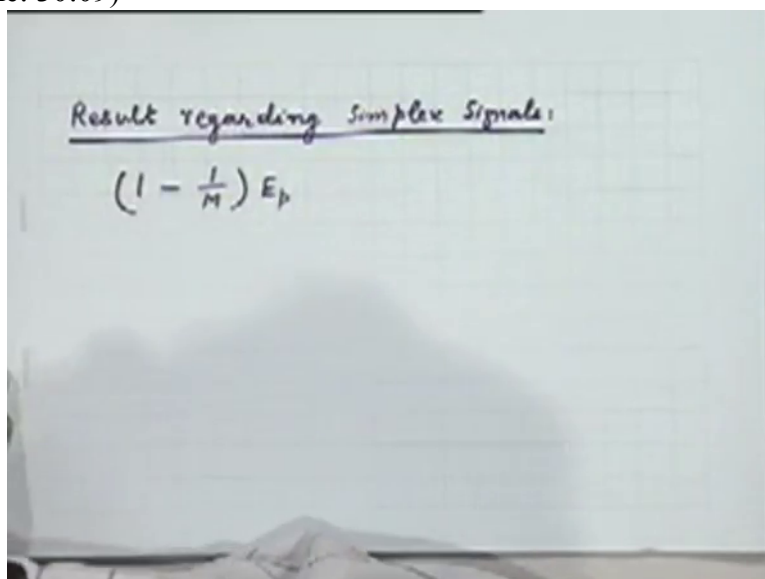 Result regarding Simplex Signals:
(1 - 1/M) Ep